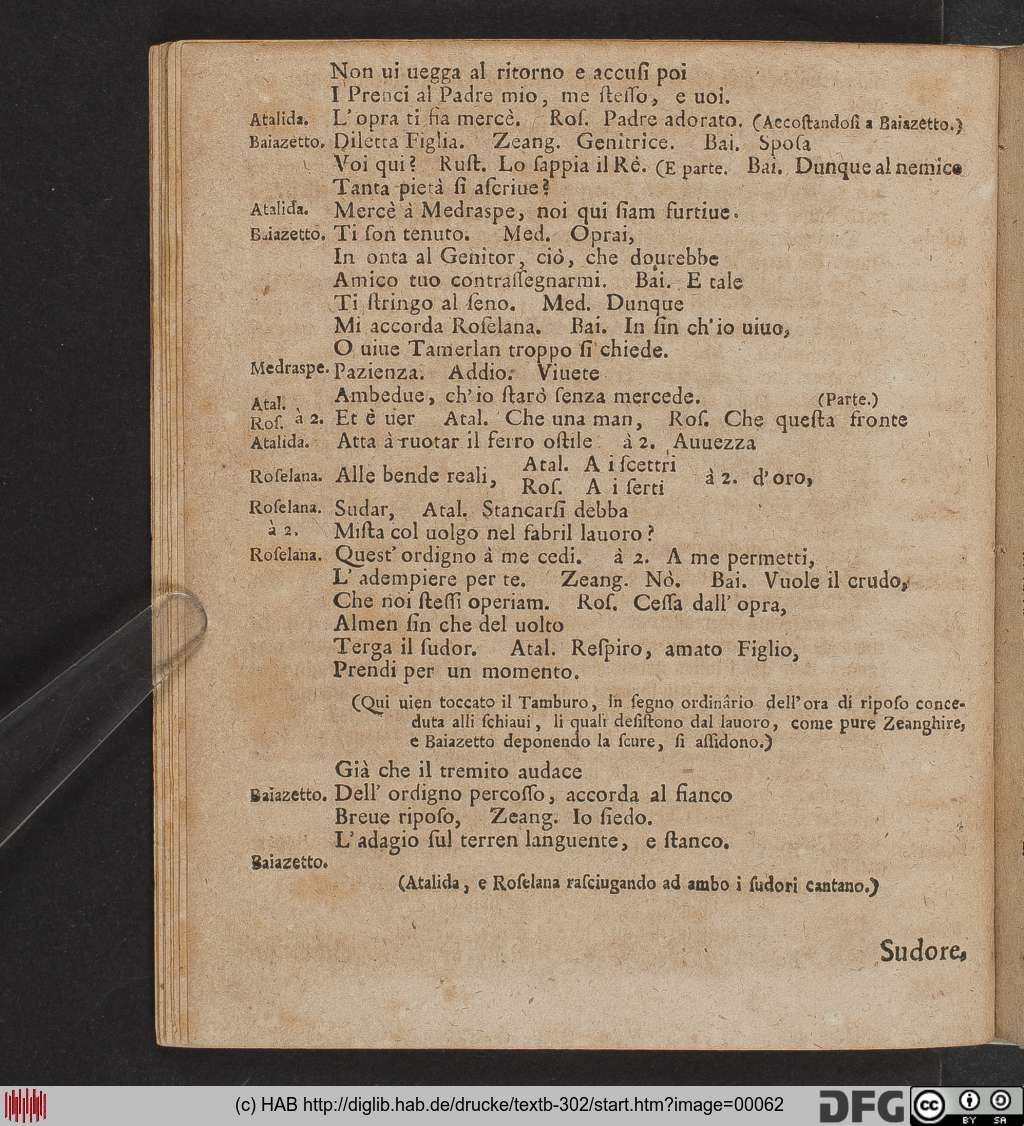 Non ui uegga al ritorno e accuſi poi
I Prenci al Padre mio, me ſteſſo, e uoi.
Atalida. L'opra ti ſia mercè. Roſ. Padre adorato. (Accoſtandoſi a Baiazetto.)
Baiazetto. Diletta Figlia. Zeang. Genitrice. Bai. Spoſa
Voi qui? Ruſt. Lo ſappia il Rè. (E parte. Bai. Dunque al nemico
Tanta pietà ſi aſcriue?
Atalida. Mercè à Medraspe, noi qui ſiam furtiue.
Baiazetto. Ti ſon tenuto. Med. Oprai,
In onta al Genitor, ciò, che dourebbe
Amico tuo contraſſegnarmi. Bai. E tale
Ti ſtringo al ſeno. Med. Dunque
Mi accorda Roſelana. Bai. In ſin ch'io uiuo,
O uiue Tamerlan troppo ſi chiede.
Medraspe. Pazienza. Addio. Viuete
Ambedue, ch'io ſtarò ſenza mercede. (Parte.)
Atal. Roſ. à 2. Et è uer Atal. Che una man, Roſ. Che queſta fronte
Atalida. Atta à ruotar il ferro oſtile à 2. Auuezza
Roſelana. Alle bende reali, Atal. A i ſcettri
Roſ. A i ſerti à 2. d'oro,
Roſelana. Sudar, Atal. Stancarſi debba
à 2. Miſta col uolgo nel fabril lauoro?
Roſelana. Queſt' ordigno à me cedi. à 2. A me permetti,
L' adempiere per te. Zeang. Nò. Bai. Vuole il crudo,
Che noi ſteſſi operiam. Roſ. Ceſſa dall' opra,
Almen ſin che del uolto
Terga il ſudor. Atal. Reſpiro, amato Figlio,
Prendi per un momento.
(Qui uien toccato il Tamburo, in ſegno ordinârio dell'ora di ripoſo conce-
duta alli ſchiaui, li quali deſiſtono dal lauoro, come pure Zeanghire,
e Baiazetto deponendo la ſcure, ſi aſſidono.)
Già che il tremito audace
Baiazetto. Dell' ordigno percoſſo, accorda al fianco
Breue ripoſo, Zeang. Io ſiedo.
L'adagio ſul terren languente, e ſtanco.
Baiazetto.
(Atalida, e Roſelana raſciugando ad ambo i ſudori cantano.)
Sudore,
(c) HAB http://diglib.hab.de/drucke/textb-302/start.htm?image=00062
DFG
cc
BY SA